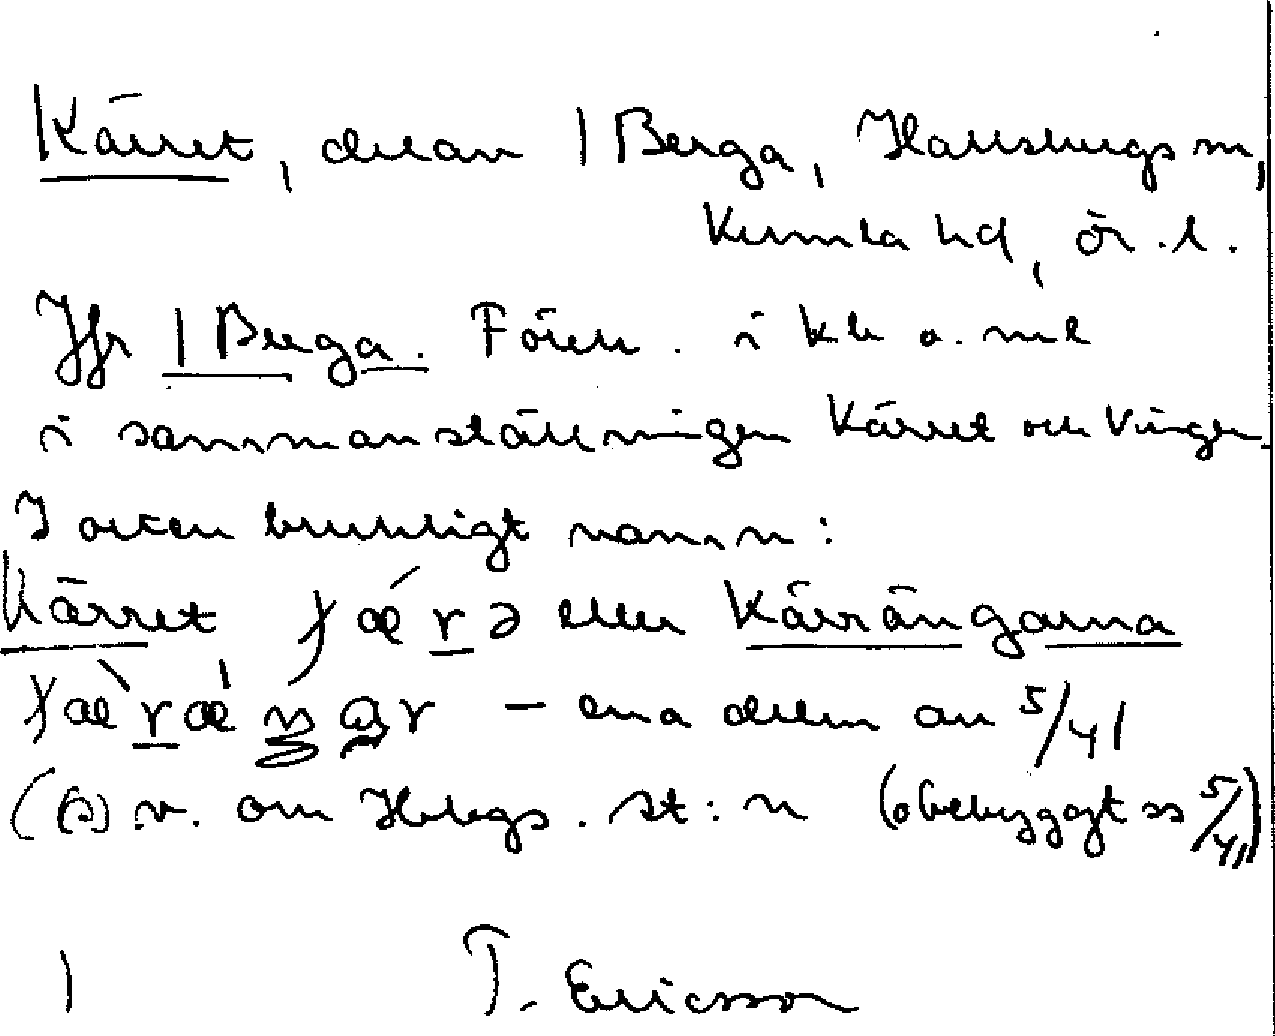 Kärret, del av 1 Berga, Hallsbergs sn,
Kumla hd, Ör. l.
Jfr 1 Berga. Fören. i kb o. ml
i sammanställningen Kärret och Vingen
I orten brukligt namn:
Kärret ꞔǽrə eller Kärrängarna
ꞔæ̀rǽŋar – ena delen av 5/41
(s).v. om Hbgs. st:n (obebyggt ss 5/41)
1 T. Ericsson